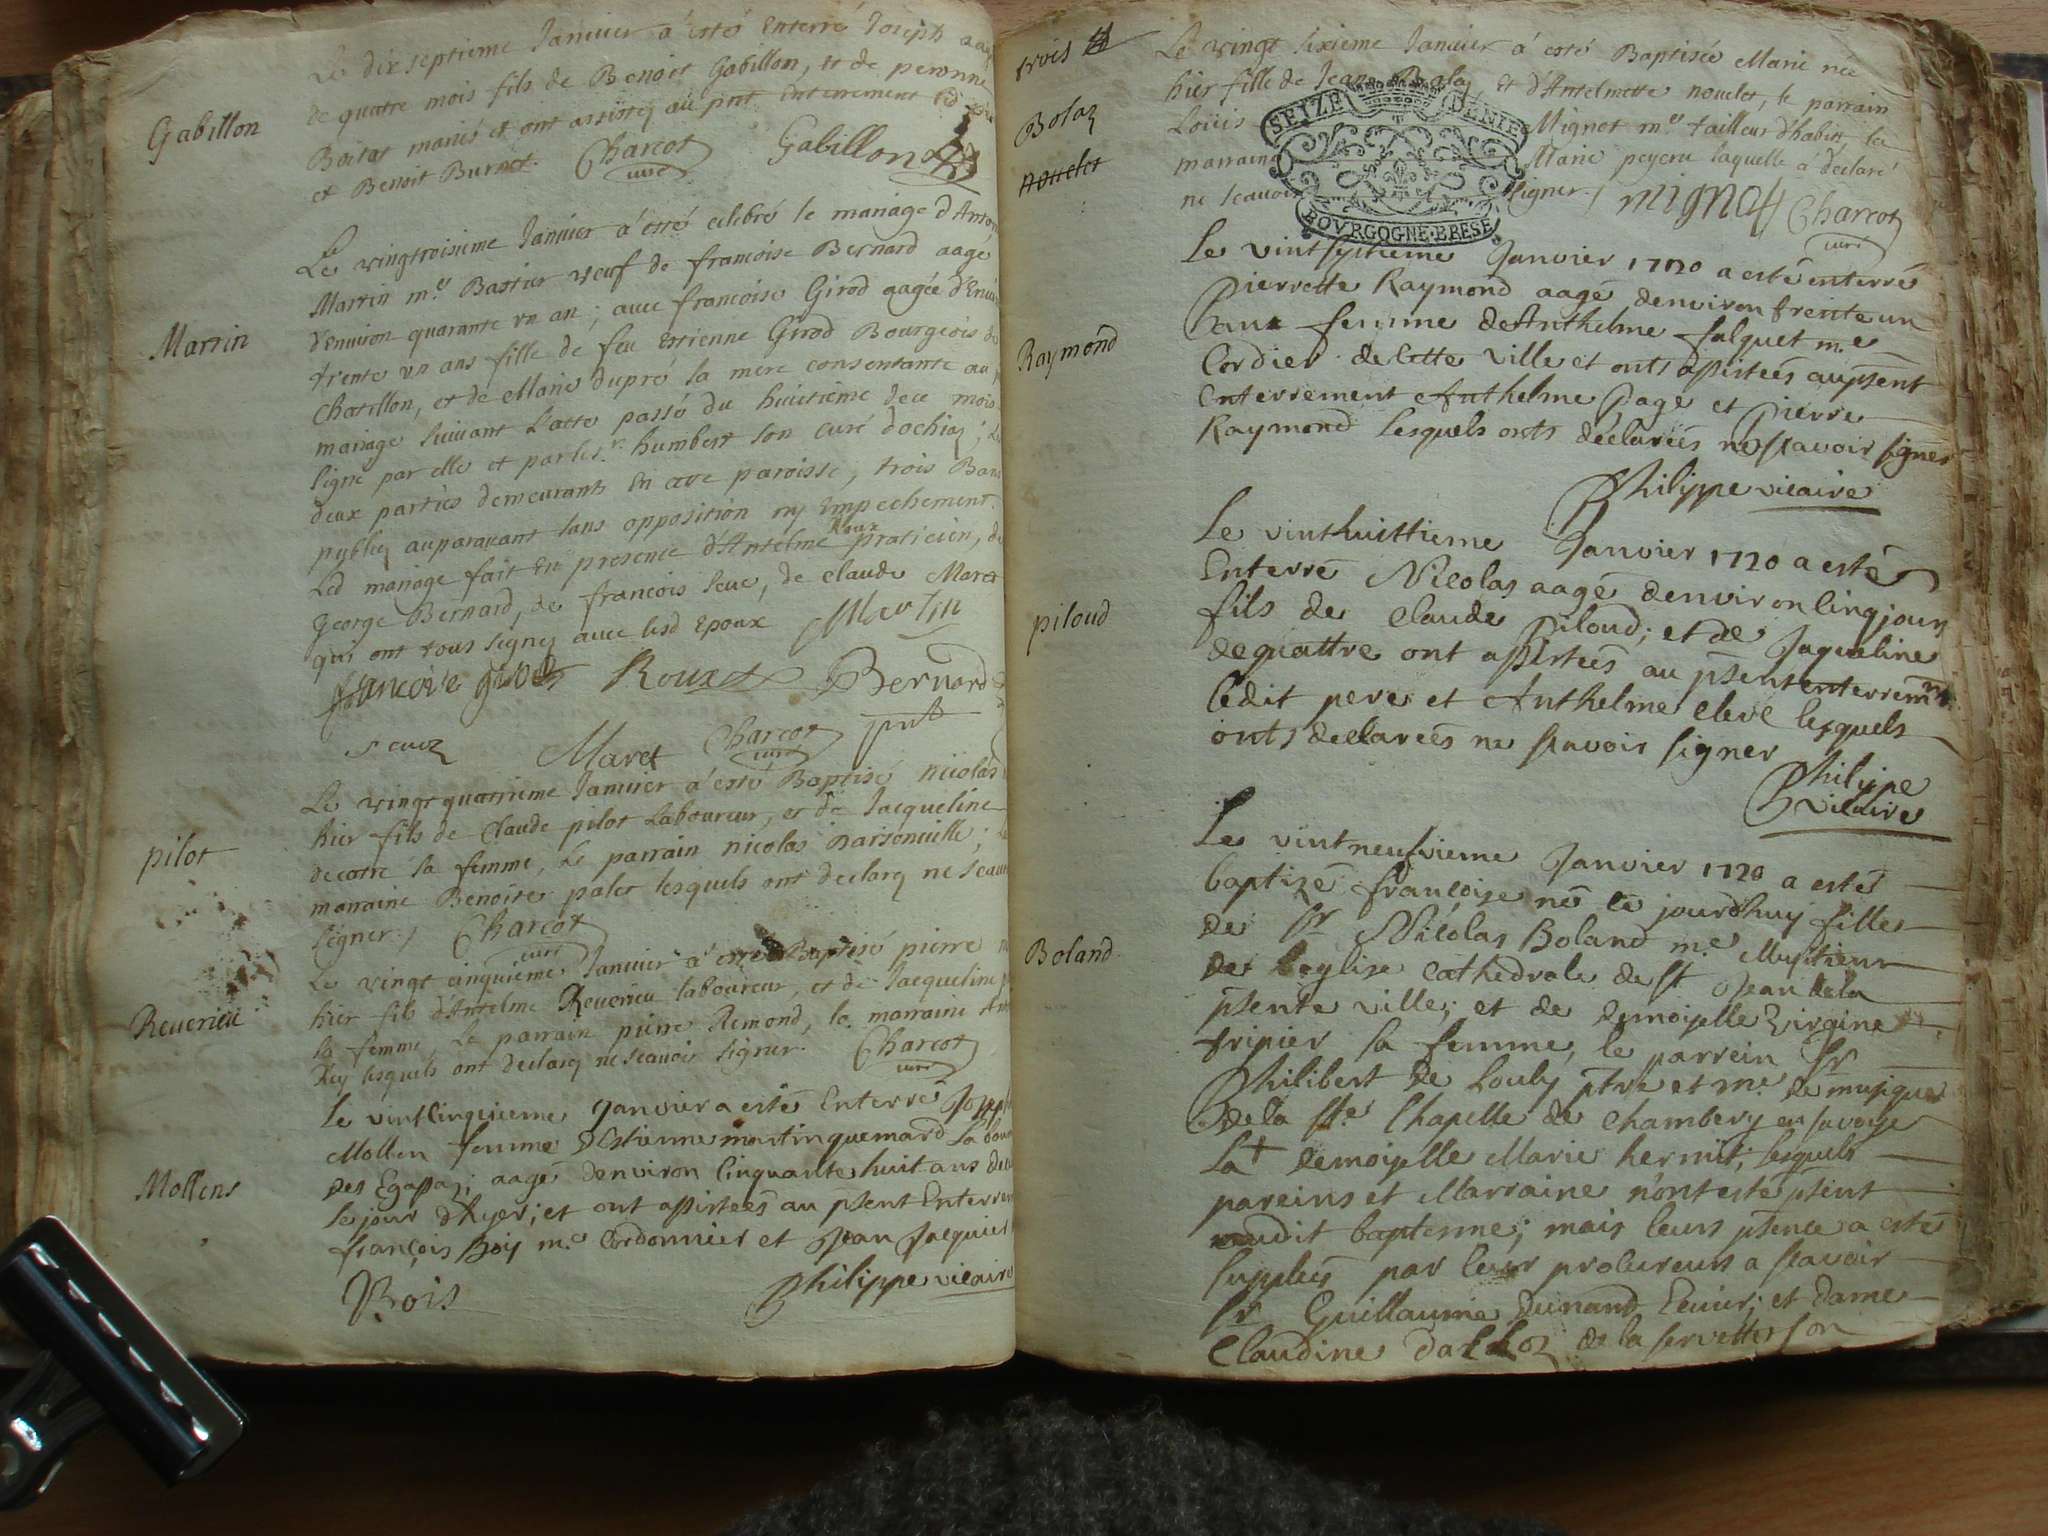 Gabillon
Le dix septieme Janvier a esté Enterré Joseph aagé
de quatre mois fils de Benoit Gabillon, et de peronne
Boitat mariés et ont assistez au pnt Enterrement led
et Benoit Burnet. Charcot Gabillon
curé
Martin
Le vingtroisieme Janvier a esté celibré le mariage d'Anto
Martin m.e Bastier veuf de francoise Bernard aagé
d'Environ quarante un an; avec francoise Girod aagée d'Envi
trente un ans fille de feu Estienne Girod Bourgeois de
Chatillon, et de Marie dupré sa mere consentante au
mariage suivant l'atte passé du huitieme de ce mois
signé par elle et par les.r humbert son curé dochiaz; Le
deux parties demeurants En cette paroisse, trois Bans
publiez auparavant sans opposition ny Empechement
Led mariage fait En presence d'Antelme Roux praticien, de
George Bernard, de francois seue, de Claude Maret
qui ont tous signez avec lesd Epoux Martin
francoise girod Roux Bernard
seue Maret Charcot pnt
curé
pilot
Le vingt quatrieme Janvier a esté Baptisé nicolas
hier fils de Claude pilot Laboureur, et de Jacqueline
decotre sa femme, Le parrain nicolas Barsonville; La
marraine Benoite palet lesquels ont declarez ne scavoi
signer / Charcot
curé
Reuerieu
Le vingt cinquieme Janvier a esté Baptisé pierre n
hier fils d'Antelme Reuerieu laboureur, et de Jacqueline
sa femme, Le parrain pierre Remond, la marraine An
Rey lesquels ont declarez ne scavoir signer. Charcot
curé
Mollens
Le vintcinqieme Janvier a esté Enterré Josepht
Mollen femme d'Estienne martin quemard La bou
des Egassaz; aagé denviron Cinquante huit ans de
le jour d'hyer; et ont assistees au psent Enterrem
françois Boiy m.e Cordonnier et Jean Jacquier
Bois Philippe vicaire
trois
Bolaz
nouelet
Le vingt sixieme Janvier a esté Baptisée Marie née
hier fille de Jean Bolaz, et d'Antelmette nouelet, le parrain
Loüis Mignot m.e tailleur d'habits, la
marraine Marie peyeru laquelle a declaré
ne scavoir signer. / mignot Charcot
curé
SEIZE DENIE
BOVRGOGNE·BRESE
Raymond
Le vintseptieme Janvier 1720 a esté enterré
Pierrette Raymond aagé denviron trente un
ans femme de Anthelme falquet m.e
Cordier de Cette ville et onts assistées au psent
enterrement Anthelme page et pierre
Raymond lesquels onts déclarées ne scavoir signer
Philippe vicaire
piloud
Le vinthuittieme Janvier 1720 a esté
Enterré Nicolas aagé denviron Cinq jours
fils de Claude Piloud; et de Jaqueline
dequattre ont assistées au psent enterrem.nt
Ledit pere et Anthelme eleve lesquels
onts declarées ne scavoir signer
Philippe
vicaire
Boland
Le vintneufvieme Janvier 1720 a esté
baptizé françoise né ce jourdhuy fille
de sr Nicolas Boland m.e Musitien
de leglise Cathedrale de st Jean dela
psente ville; et de Demoiselle Virgine
fripier sa femme, le parrein sr
Philibert de Louby ptre et m.e de musique
de la ste Chapelle de Chambery en savoye
La Demoiselle Marie hermit; lesquels
pareins et Marraine n'ont esté psent
audit baptesme; mais leurs psence a esté
supplées par leur procureurs a scavoir
sr Guillaume Dunand Ecuier; et dame
Claudine de la servette son